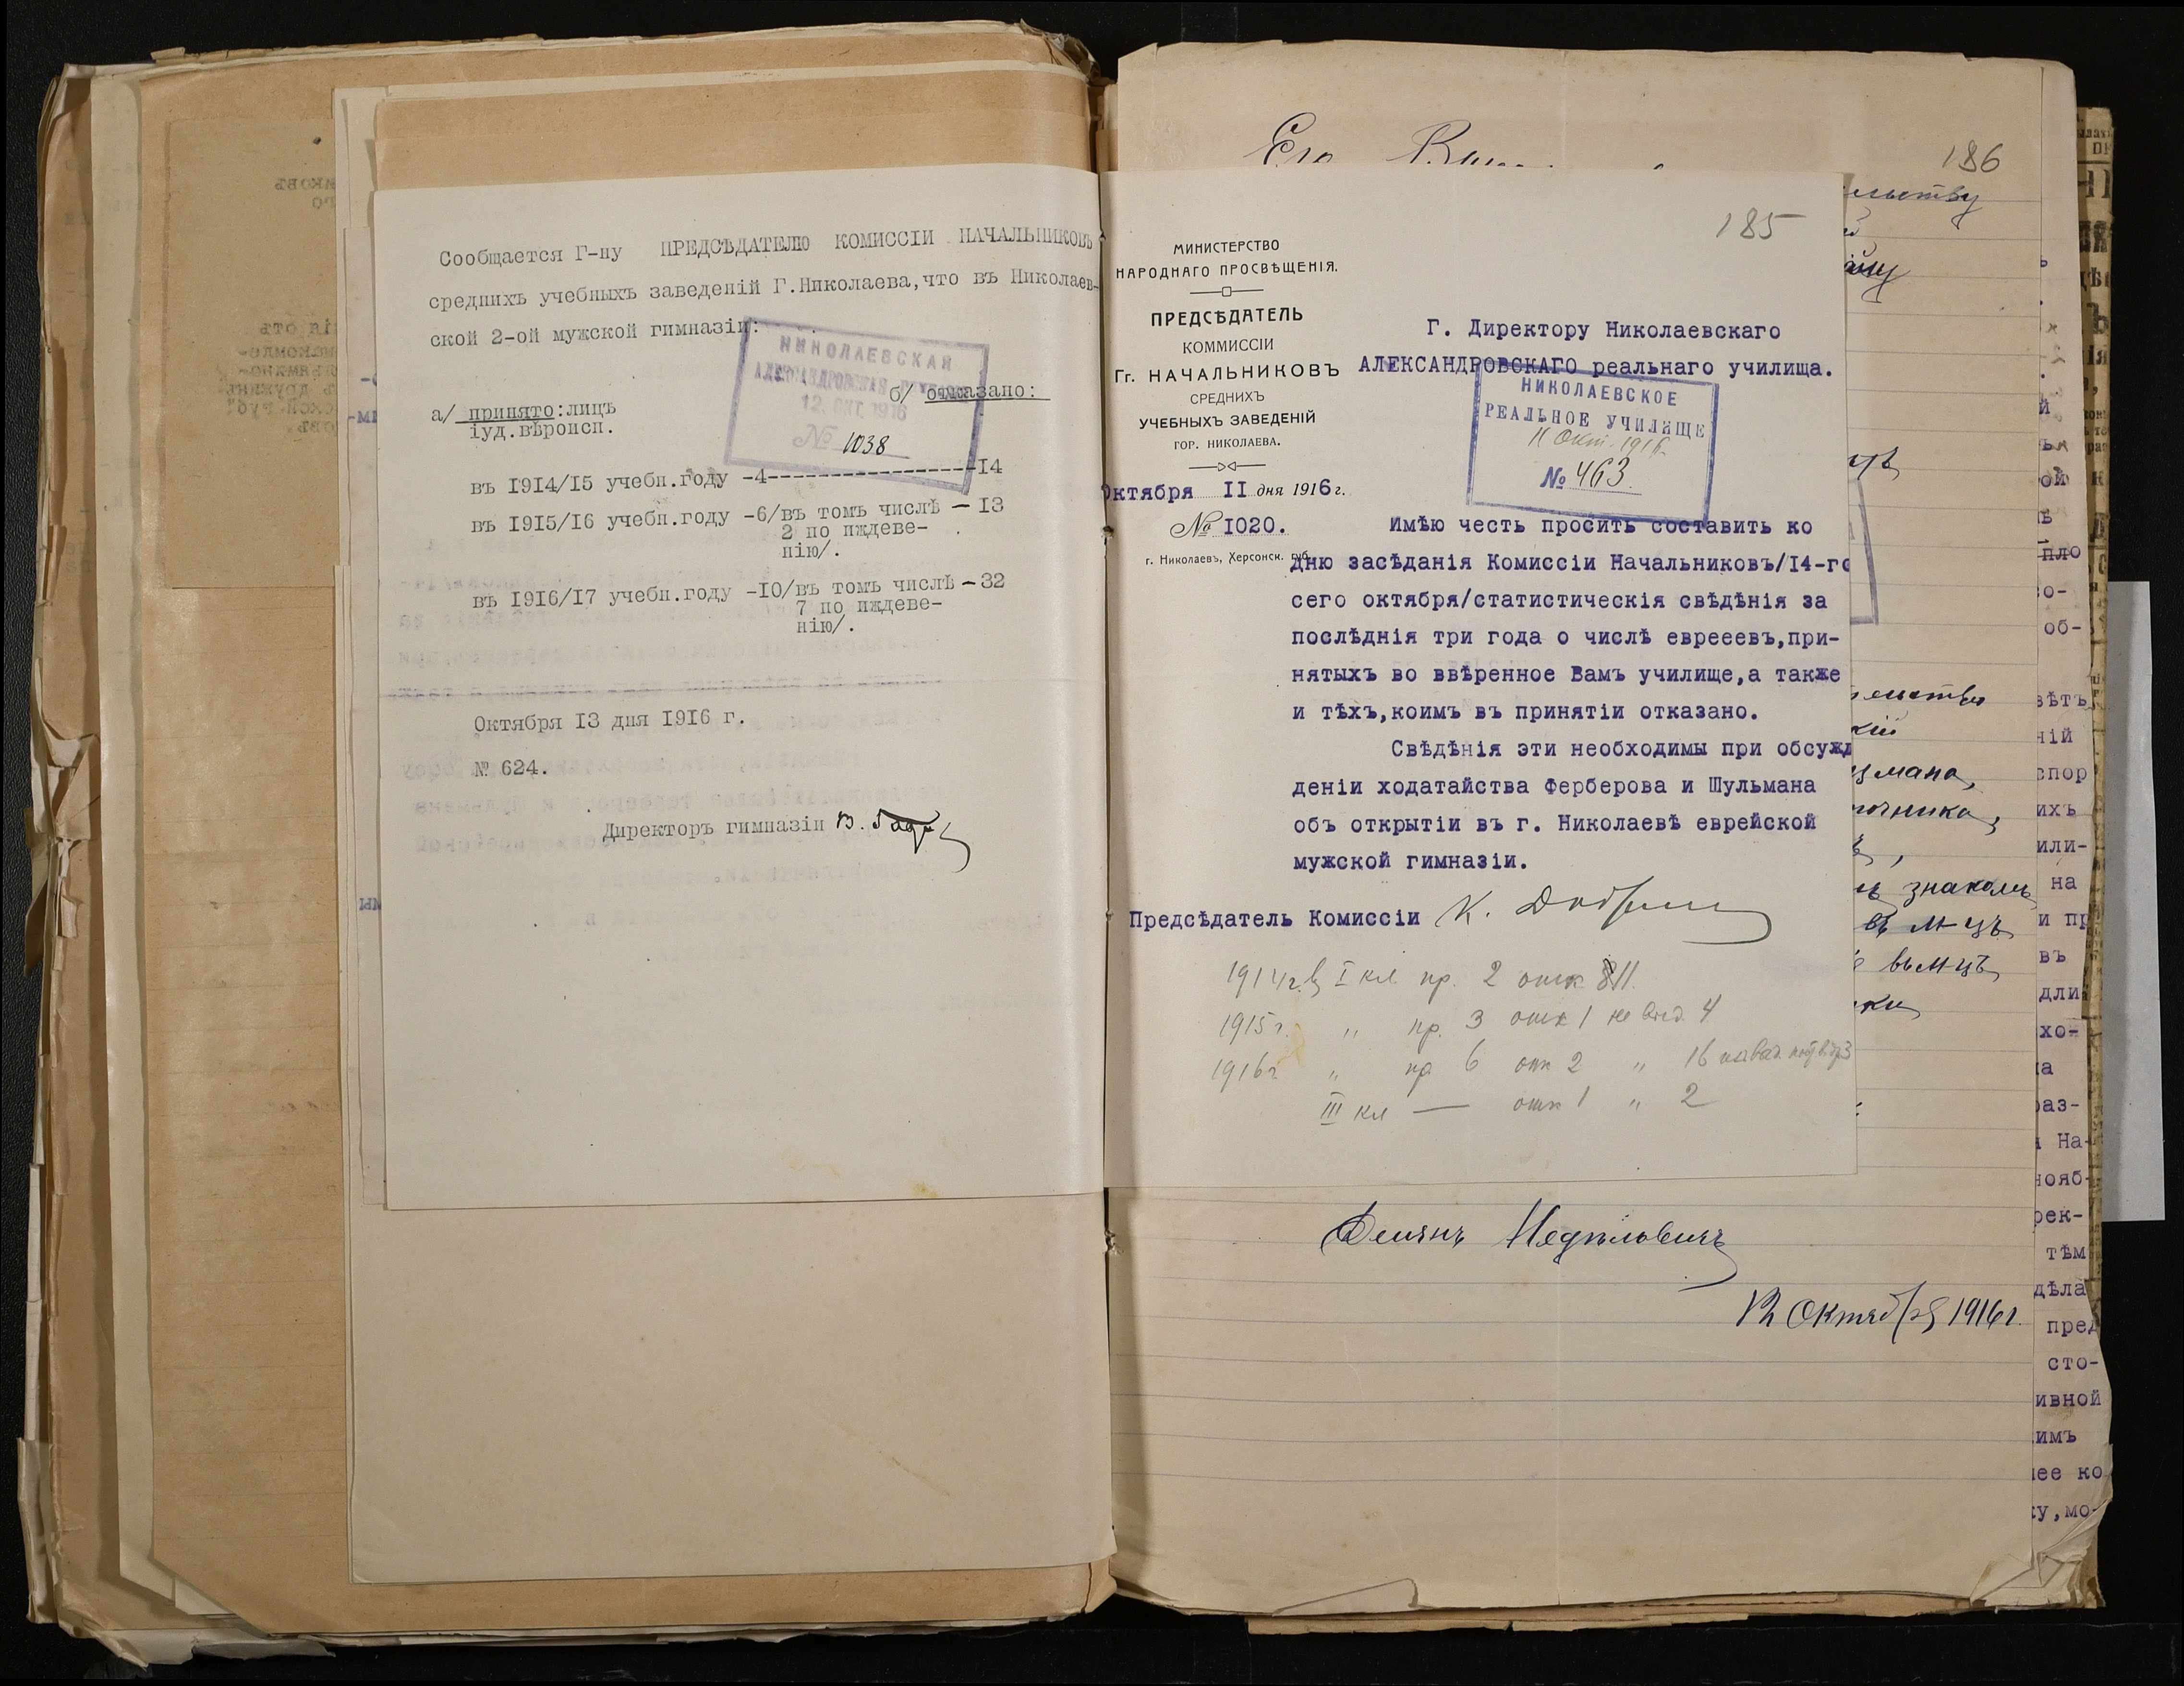 Сообщается Г-ну ПРЕДСѢДАТЕЛЮ КОМИССІИ НАЧАЛЬНИКОВЪ
среднихъ учебныхъ заведеній Г.Николаева,что въ Николаев-
ской 2-ой мужской гимназіи:
НИКОЛАЕВСКАЯ
АЛЕКСАНДРОВСКАЯ
12. ОКТ. 1916
№ 1038
а/ принято:лицъ
іуд.вѣроисп.
б/ отказано:
въ 1914/15 учебн.году -4-------------------14
въ 1915/16 учебн.году -6/въ томъ числѣ - 13
2 по иждеве-
нію/.
въ 1916/17 учебн.году -10/въ томъ числѣ -32
7 по иждеве-
нію/.
Октября 13 дня 1916 г.
№ 624.
Директоръ гимназіи В.
Его
186
185
МИНИСТЕРСТВО
НАРОДНАГО ПРОСВѢЩЕНІЯ.
ПРЕДСѢДАТЕЛЬ
КОММИССІИ
Гг. НАЧАЛЬНИКОВЪ
СРЕДНИХЪ
УЧЕБНЫХЪ ЗАВЕДЕНІЙ
ГОР. НИКОЛАЕВА.
Октября 11 дня 1916 г.
№ 1020.
г. Николаевъ, Херсонск. губ.
Г. Директору Николаевскаго
АЛЕКСАНДРОВСКАГО реальнаго училища.
НИКОЛАЕВСКОЕ
РЕАЛЬНОЕ УЧИЛИЩЕ
11 Окт. 1916
№ 463.
Имѣю честь просить составить ко
дню засѣданія Комиссіи Начальниковъ/14-го
сего октября/статистическія свѣдѣнія за
послѣднія три года о числѣ евреeевъ,при-
нятыхъ во ввѣренное Вамъ училище,а также
и тѣхъ,коимъ въ принятіи отказано.
Свѣдѣнія эти необходимы при обсуж
деніи ходатайства Ферберова и Шульмана
объ открытіи въ г. Николаевѣ еврейской
мужской гимназіи.
Предсѣдатель Комиссіи К.
1914г. в I кл пр. 2 отк 11.
1915г. " пр. 3 отк 1 не выд. 4
1916г " пр 6 отк 2 " 16
III кл — отк 1 " 2
знакомъ
въ м-цъ
Демянъ
12 Октября 1916 г.